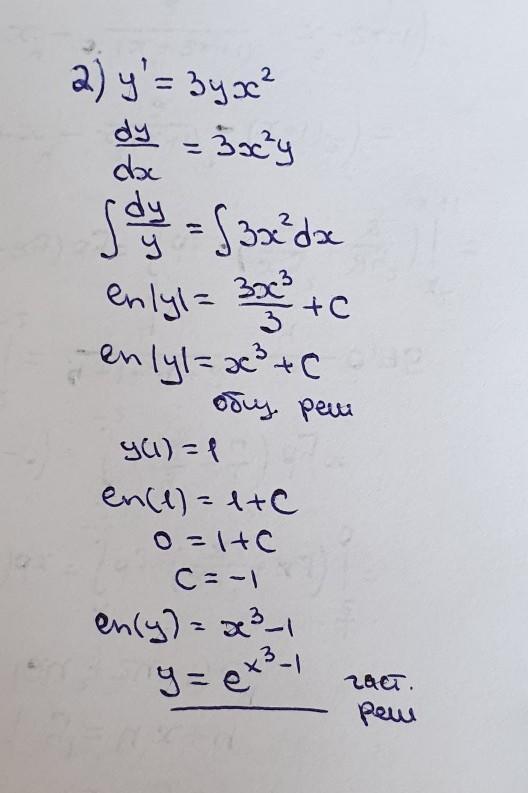 2) y' = 3yx²
dy/dx = 3x²y
∫ dy/y = ∫ 3x²dx
ln|y| = 3x³/3 + C
ln|y| = x³ + C
общ. реш
y(1) = 1
ln(1) = 1 + C
0 = 1 + C
C = -1
ln(y) = x³ - 1
y = e^(x³-1) част.
реш